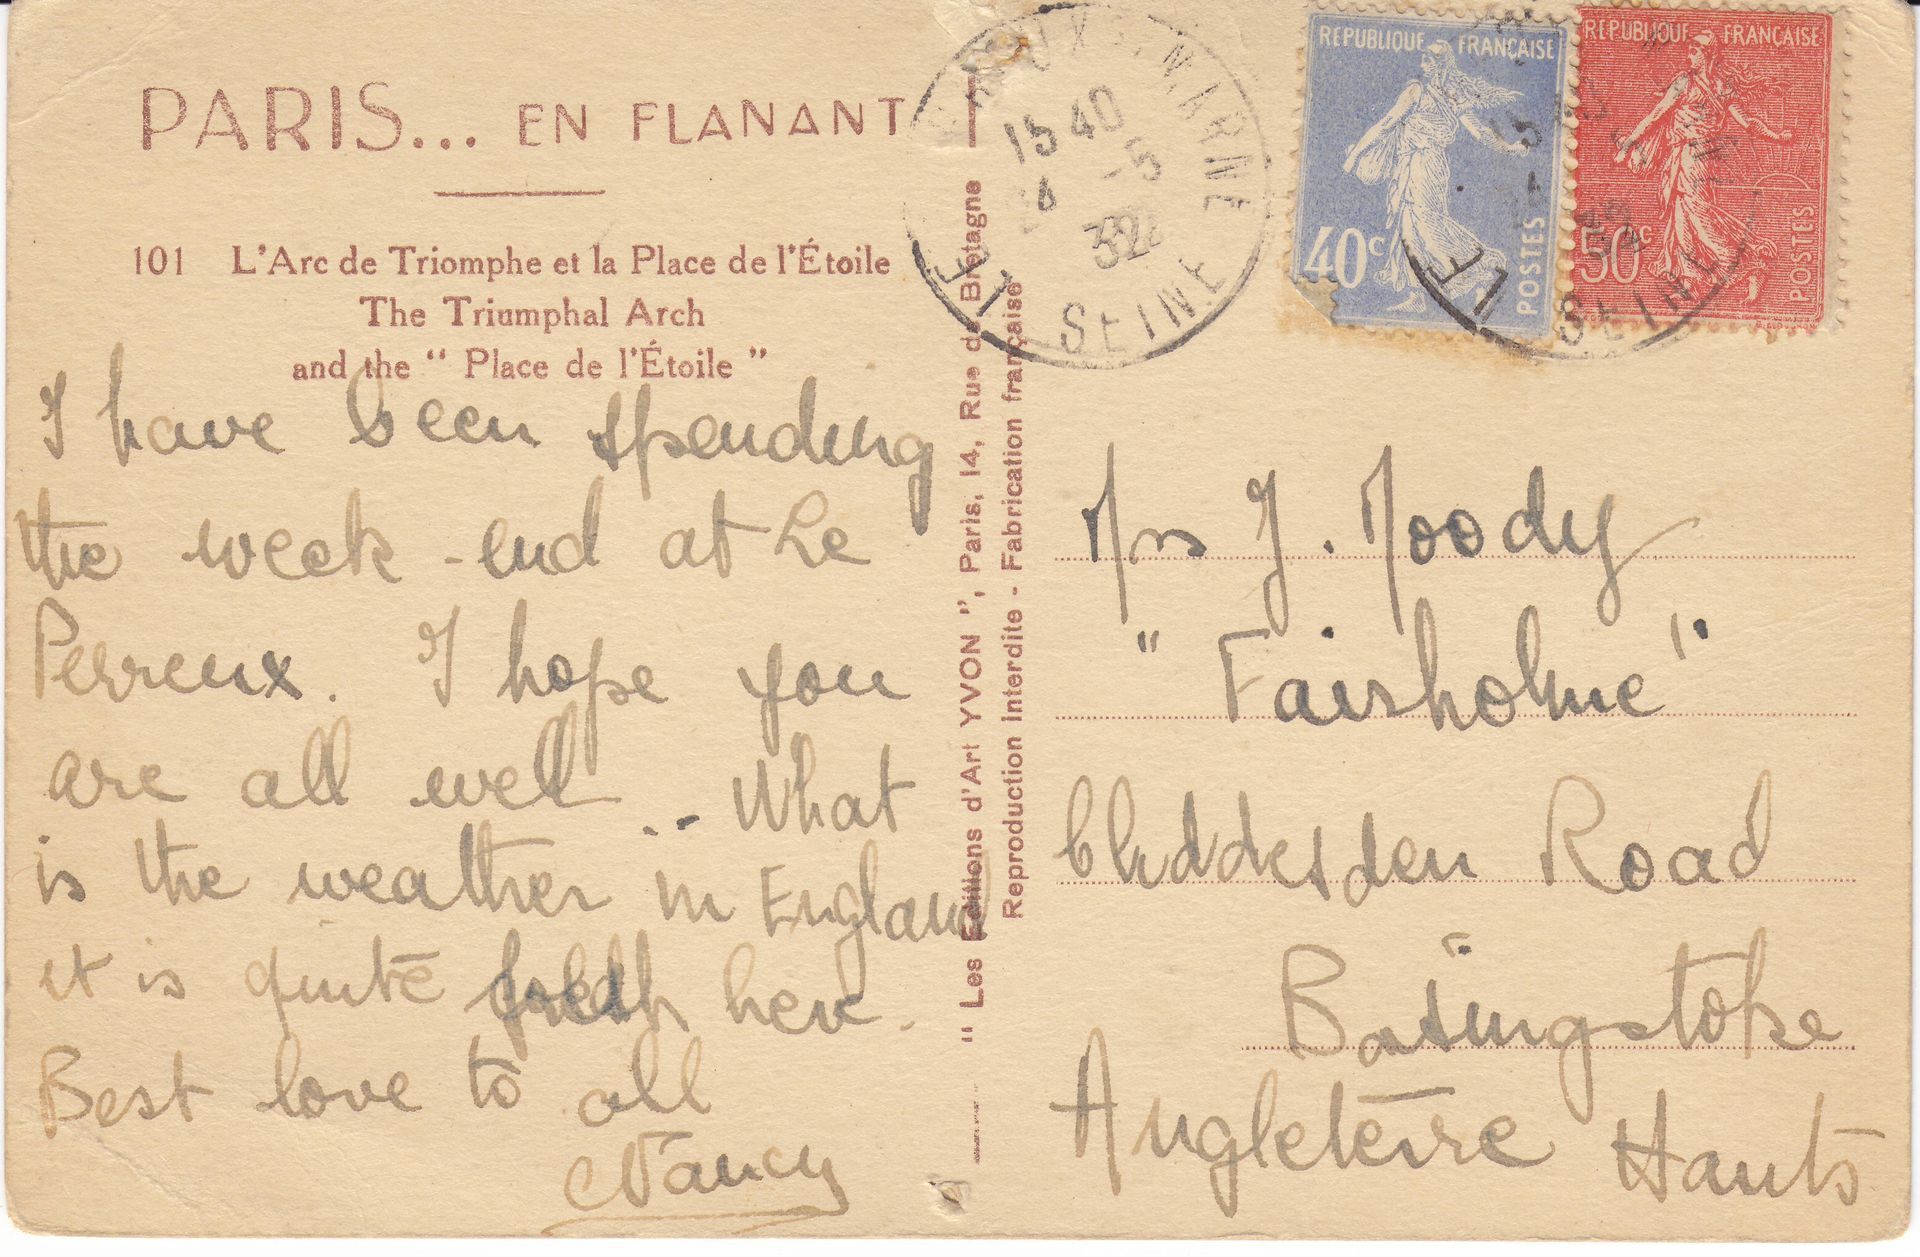 PARIS... EN FLANANT
101 L'Arc de Triomphe et la Place de l'Étoile
The Triumphal Arch
and the " Place de l'Étoile "
I have been spending
the week-end at Le
Perreux. I hope you
are all well... What
is the weather in England
it is quite fresh here.
Best love to all
Nancy
" Les Editions d'Art YVON ", Paris, 14, Rue de Bretagne
Reproduction Interdite - Fabrication française
LE PERREUX S. MARNE
15 40
-5
32
SEINE
REPUBLIQUE FRANÇAISE
40c
POSTES
REPUBLIQUE FRANÇAISE
50c
POSTES
LE
32
SEINE
Mrs J. Moody
"Fairholme"
Cliddesden Road
Basingstoke
Angleterre Hants